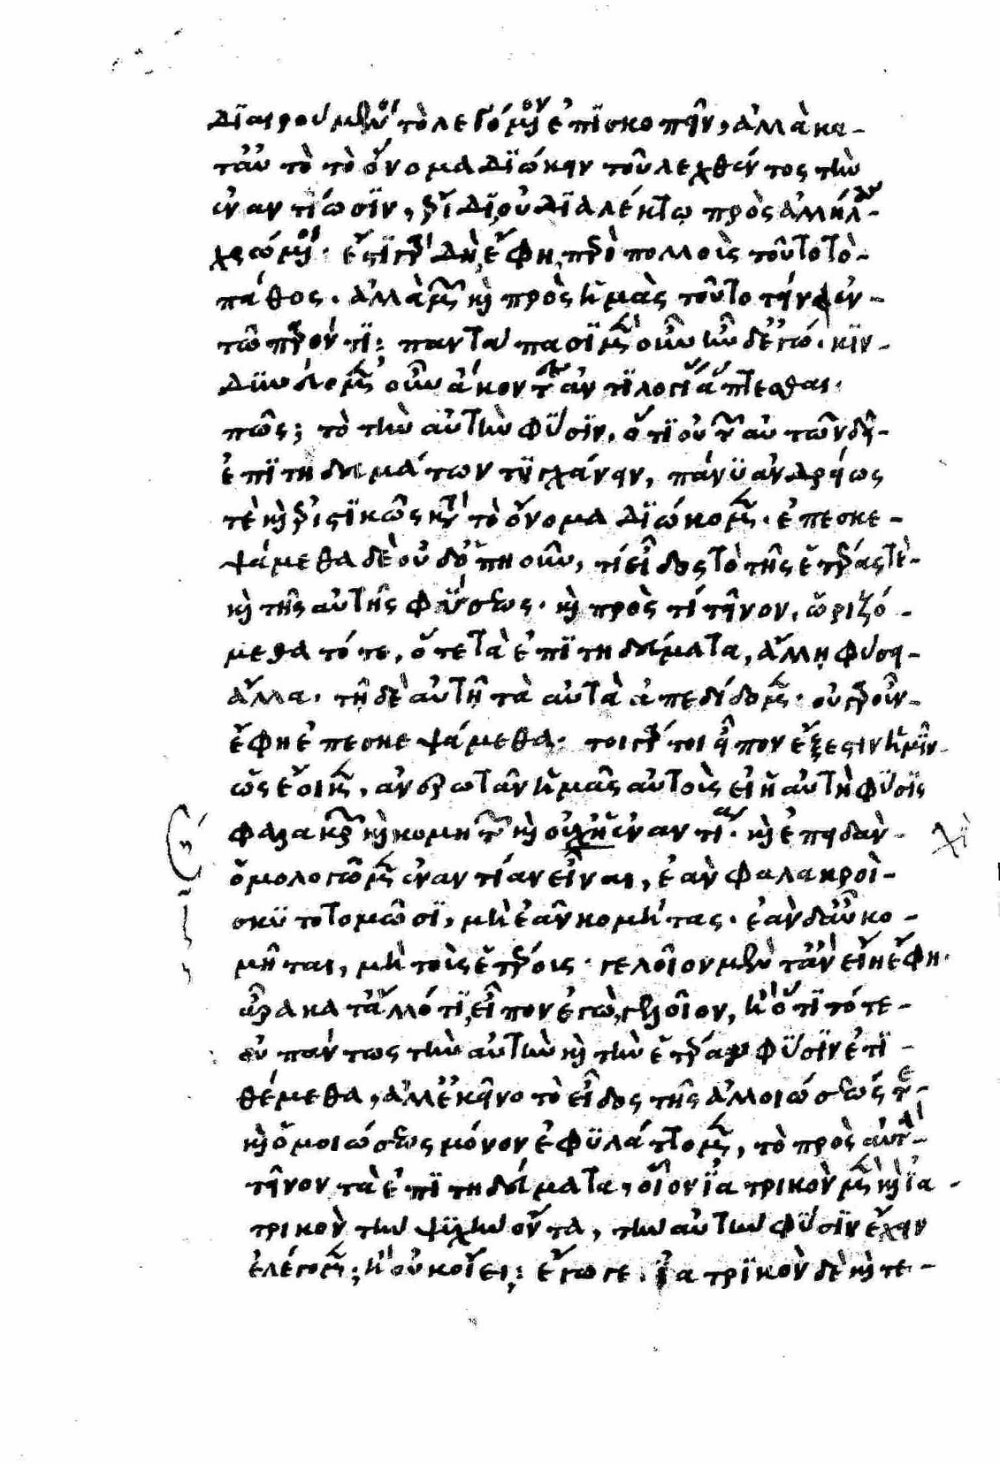 διαιρούμενοι τὸ λεγόμενον ἐπισκοπεῖν, ἀλλὰ κα-
τ' αὐτὸ τὸ ὄνομα διώκειν τοῦ λεχθέντος τὴν
ἐναντίωσιν, ἔριδι, οὐ διαλέκτῳ πρὸς ἀλλήλους
χρώμενοι. ἔστι γὰρ δὴ, ἔφη, περὶ πολλοὺς τοῦτο τὸ
πάθος. ἀλλὰ μῶν καὶ πρὸς ἡμᾶς τοῦτο τείνει ἐν
τῷ παρόντι; παντάπασι μὲν οὖν ἦν δ' ἐγώ. κιν-
δυνεύομεν οὖν ἄκοντες ἀντιλογίας ἅπτεσθαι.
πῶς; τὸ τὴν αὐτὴν φύσιν, ὅτι οὐ τῶν αὐτῶν δεῖ
ἐπιτηδευμάτων τυγχάνειν, πάνυ ἀνδρείως
τὲ καὶ ἐριστικῶς κατὰ τὸ ὄνομα διώκομεν. ἐπεσκε-
ψάμεθα δὲ οὐδ' ὅπη οὖν, τί εἶδος τὸ τῆς ἑτέρας τὲ
καὶ τῆς αὐτῆς φύσεως. καὶ πρὸς τί τεῖνον, ὡριζό-
μεθα τότε, ὅτε τὰ ἐπιτηδεύματα, ἄλλῃ φύσει
ἄλλα. τῇ δὲ αὐτῇ τὰ αὐτὰ ἀπεδίδομεν. οὐ γὰρ οὖν
ἔφη ἐπεσκεψάμεθα. τοιγάρτοι εἶπον ἔξεστιν ἡμῖν
ὡς ἔοικεν, ἀνερωτᾶν ἡμᾶς αὐτοὺς εἰ ἡ αὐτὴ φύσις
φαλακρῶν καὶ κομητῶν καὶ οὐχ ἡ ἐναντία. καὶ ἐπειδὰν
ὁμολογῶμεν ἐναντίαν εἶναι, ἐὰν φαλακροὶ
σκυτοτομῶσι, μὴ ἐᾶν κομήτας. ἐὰν δ' αὖ κο-
μῆται, μὴ τοὺς ἑτέρους. γελοῖον μὲν τἂν εἴη ἔφη.
ἆρα κατ' ἄλλό τι, εἶπον ἐγώ, γελοῖον, ἢ ὅτι τότε
οὐ πάντως τὴν αὐτὴν καὶ τὴν ἑτέραν φύσιν ἐτι-
θέμεθα, ἀλλ' ἐκεῖνο τὸ εἶδος τῆς ἀλλοιώσεώς τε
καὶ ὁμοιώσεως μόνον ἐφυλάττομεν, τὸ πρὸς αὐτὰ
τεῖνον τὰ ἐπιτηδεύματα, οἷον ἰατρικὸν μὲν καὶ ἰα-
τρικὸν τὴν ψυχὴν ὄντα, τὴν αὐτὴν φύσιν ἔχειν
ἐλέγομεν; ἢ οὐκ οἴει; ἔγωγε. ἰατρικὸν δὲ καὶ τε-